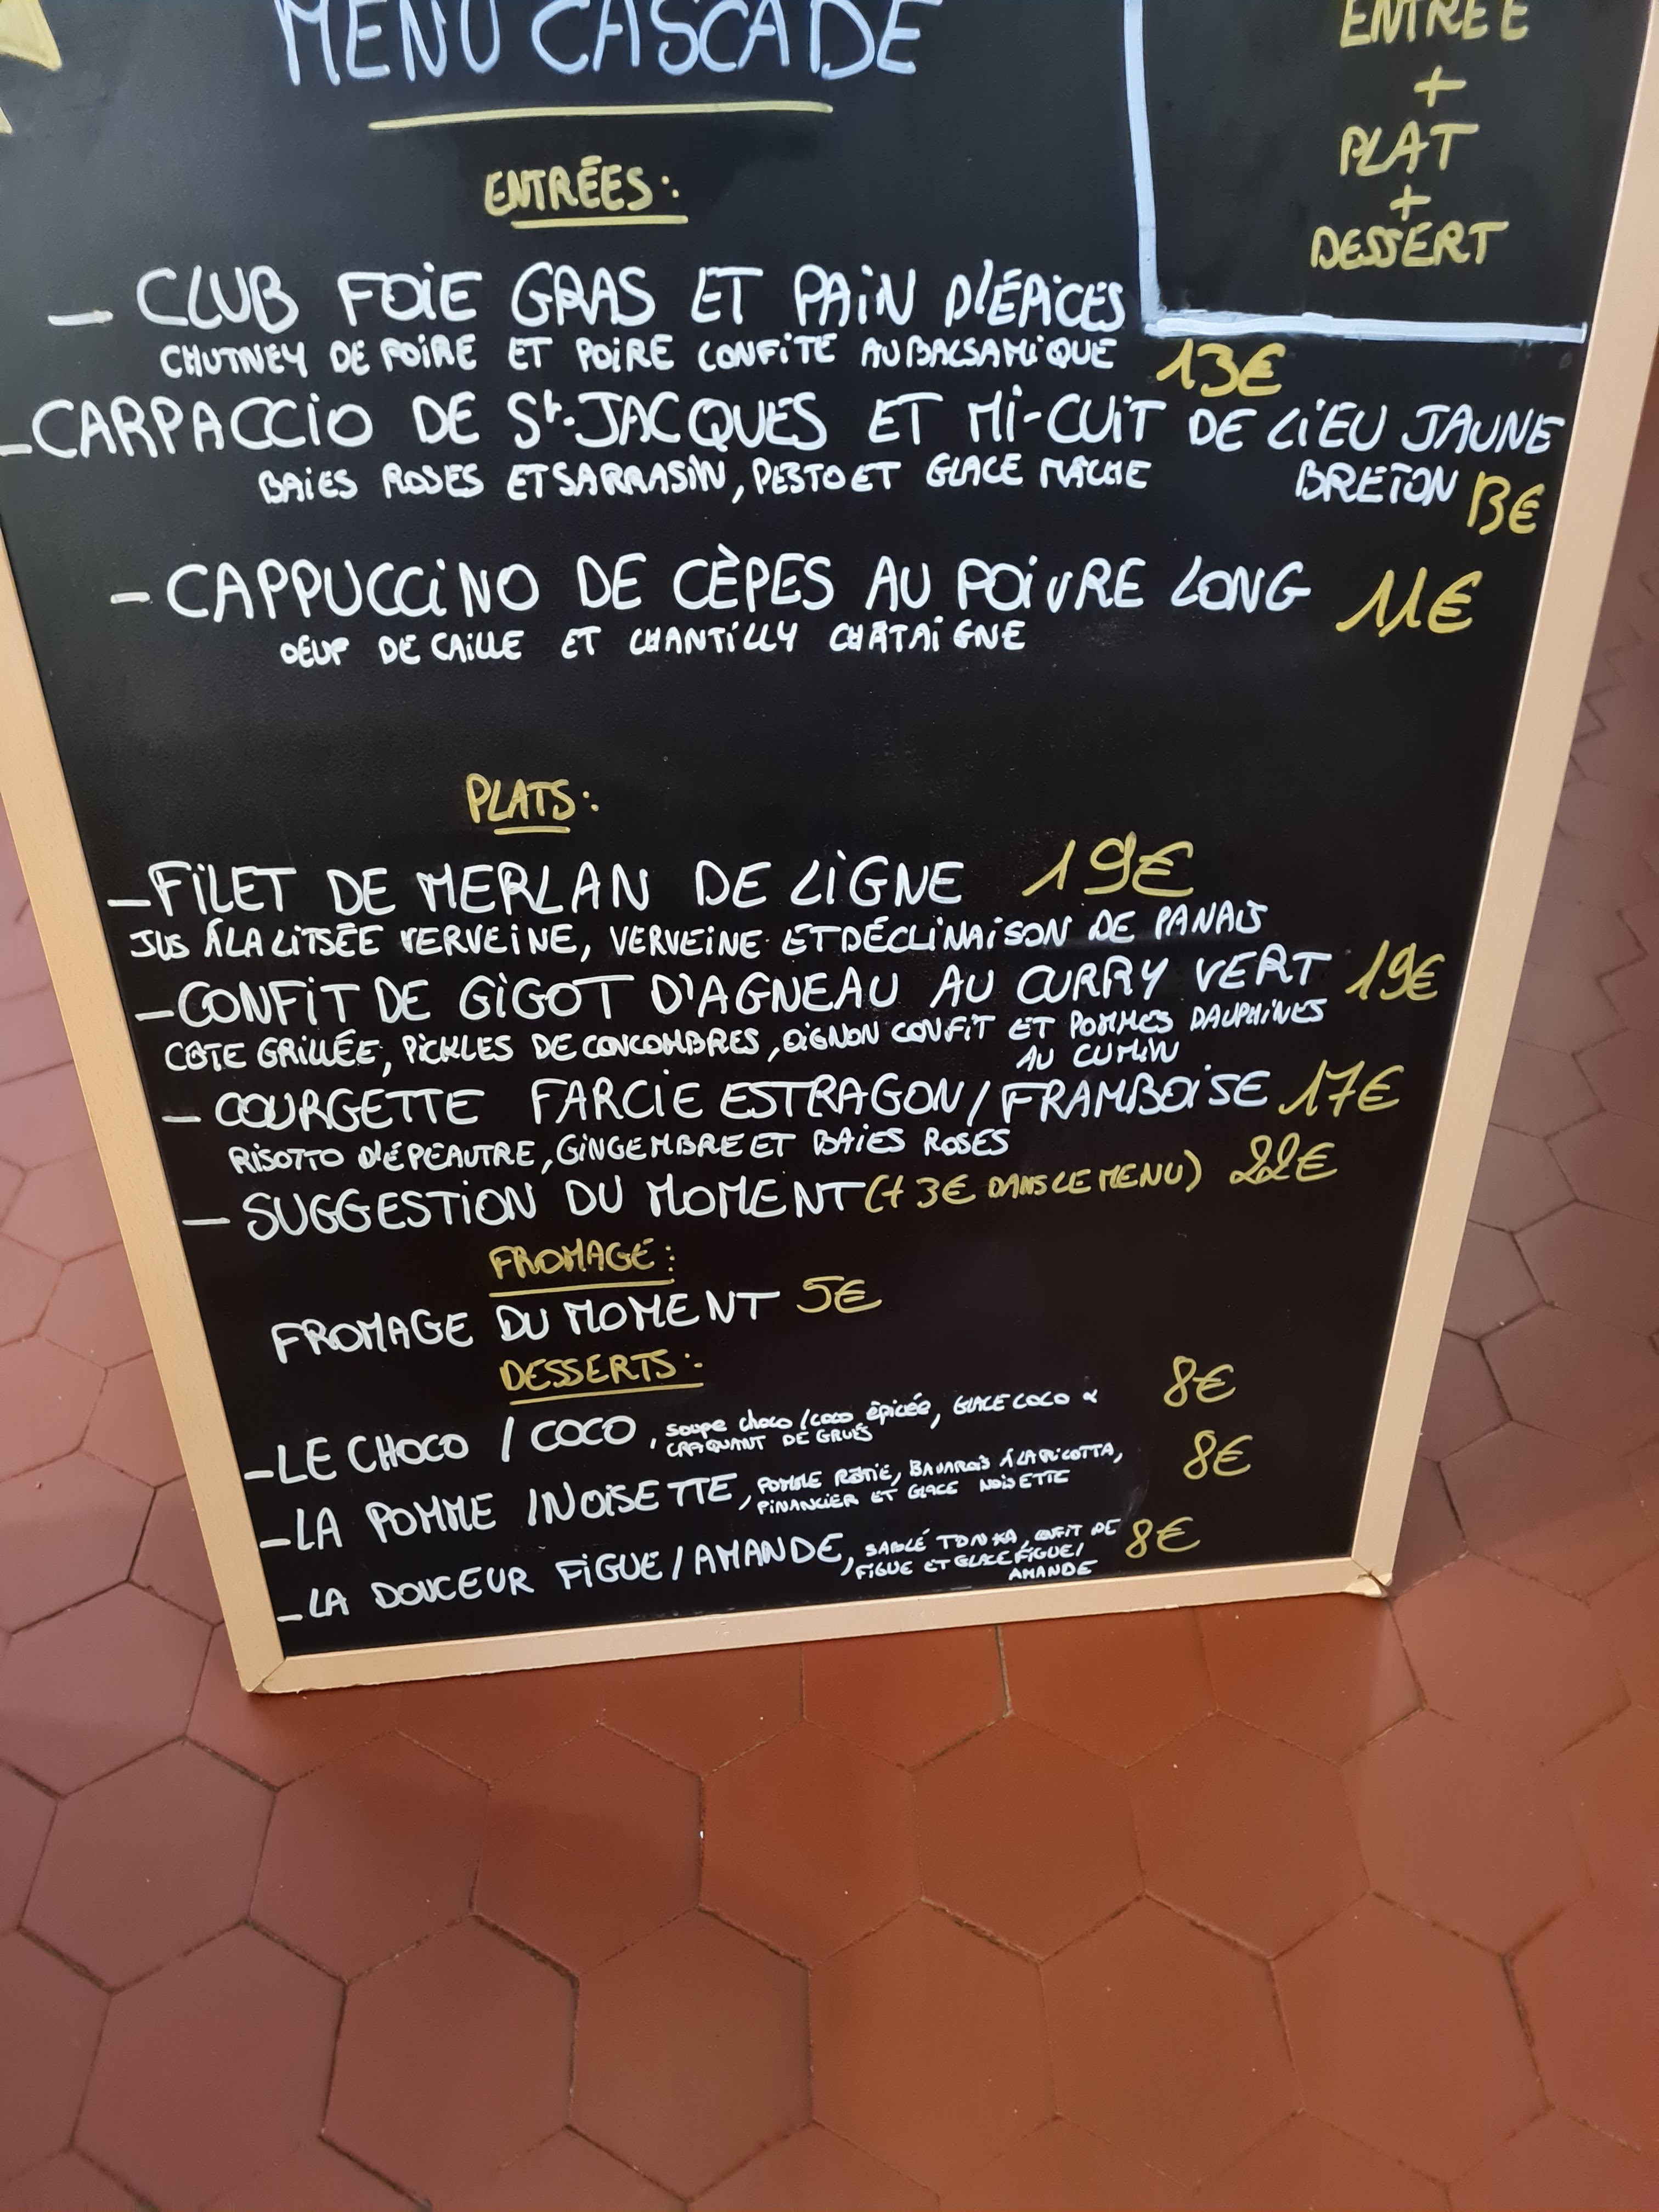 MENU CASCADE
ENTRÉE
+
PLAT
+
DESSERT
ENTRÉES:
- CLUB FOIE GRAS ET PAIN D'ÉPICES
CHUTNEY DE POIRE ET POIRE CONFITE AU BALSAMIQUE 13€
- CARPACCIO DE St-JACQUES ET MI-CUIT DE LIEU JAUNE
BAIES ROSES ET SARRASIN, PESTO ET GLACE MÂCHE BRETON 13€
- CAPPUCCINO DE CÈPES AU POIVRE LONG 11€
OEUF DE CAILLE ET CHANTILLY CHÂTAIGNE
PLATS:
- FILET DE MERLAN DE LIGNE 19€
JUS À LA LITSÉE VERVEINE, VERVEINE ET DÉCLINAISON DE PANAIS
- CONFIT DE GIGOT D'AGNEAU AU CURRY VERT 19€
CÔTE GRILLÉE, PICKLES DE CONCOMBRES, OIGNON CONFIT ET POMMES DAUPHINES
AU CUMIN
- COURGETTE FARCIE ESTRAGON/FRAMBOISE 17€
RISOTTO D'ÉPEAUTRE, GINGEMBRE ET BAIES ROSES
- SUGGESTION DU MOMENT (+ 3€ DANS LE MENU) 22€
FROMAGE:
FROMAGE DU MOMENT 5€
DESSERTS:
- LE CHOCO / COCO, soupe choco/coco épicée, GLACE COCO & 8€
CRAQUANT DE GRUÉS
- LA POMME /NOISETTE, POMME RÔTIE, BAVAROIS À LA RICOTTA, 8€
FINANCIER ET GLACE NOISETTE
- LA DOUCEUR FIGUE/AMANDE, SABLÉ TONKA, CONFIT DE 8€
FIGUE ET GLACE FIGUE/
AMANDE